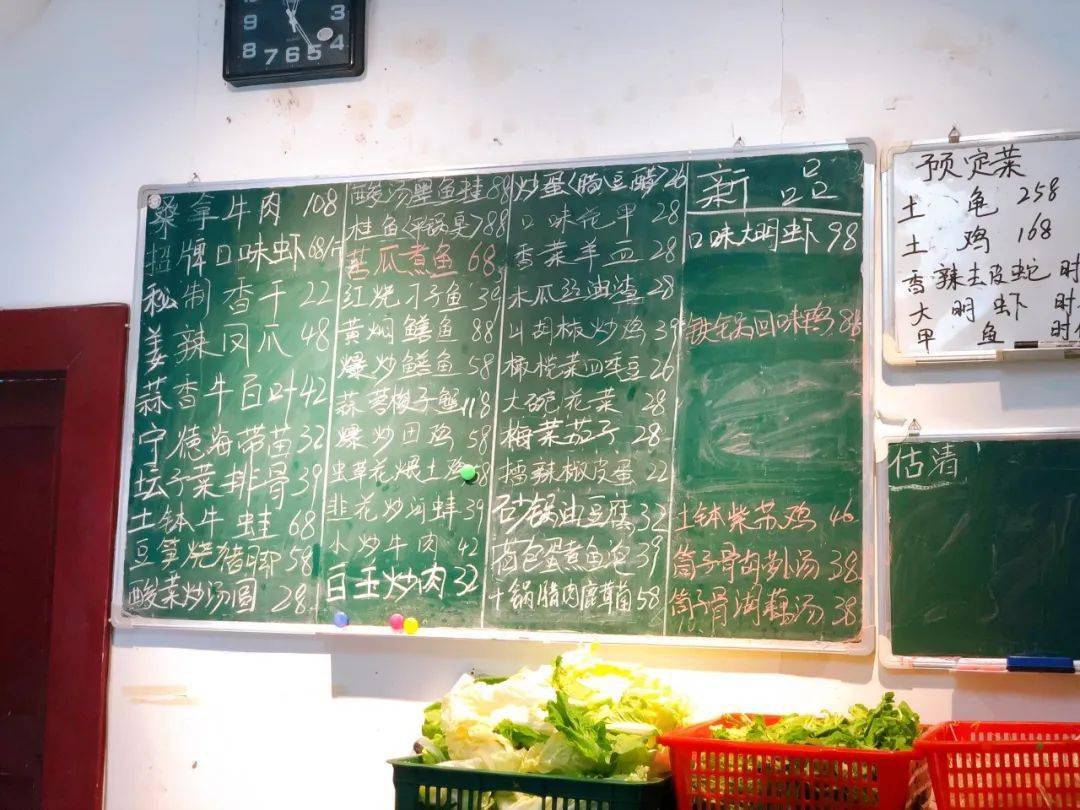 8 7 6 5 4 3
桑拿牛肉 108
招牌口味虾 68/
秘制香干 22
姜辣凤爪 48
蒜香牛百叶 42
宁德海带苗 32
坛子菜排骨 39
土钵牛蛙 68
豆笋烧猪脚 58
酸菜炒汤圆 28
酸汤 鱼 88
桂鱼 88
苦瓜煮鱼 68
红烧刁子鱼 39
黄焖鳝鱼 88
爆炒鳝鱼 58
蒜薹梭子蟹 118
爆炒田鸡 58
虫草花煨土鸡 58
韭花炒河蚌 39
小炒牛肉 42
白玉炒肉 32
炒蛋 26
口味花甲 28
香菜羊血 28
木瓜丝油渣 28
胡椒炒鸡 39
橄榄菜四季豆 26
大碗花菜 28
梅菜茄子 28
擂辣椒皮蛋 22
砂锅油豆腐 32
荷包蛋煮鱼泡 39
干锅腊肉 58
新品
口味大明虾 98
铁锅回味鸭 88
土钵柴 鸡 46
筒子骨 萝卜汤 38
筒子骨 藕汤 38
预定菜
土龟 258
土鸡 168
香辣土皮蛇 时
大明虾 时
甲鱼 时
估清